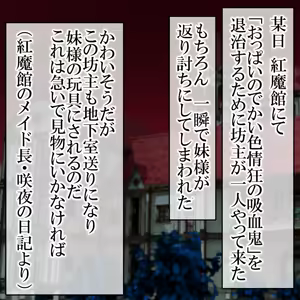 某日 紅魔館にて
「おっぱいのでかい色情狂の吸血鬼」を
退治するために坊主が一人やって来た
もちろん 一瞬で妹様が
返り討ちにしてしまわれた
かわいそうだが
この坊主も地下室送りになり
妹様の玩具にされるのだ
これは急いで見物にいかなければ
（紅魔館のメイド長・咲夜の日記より）